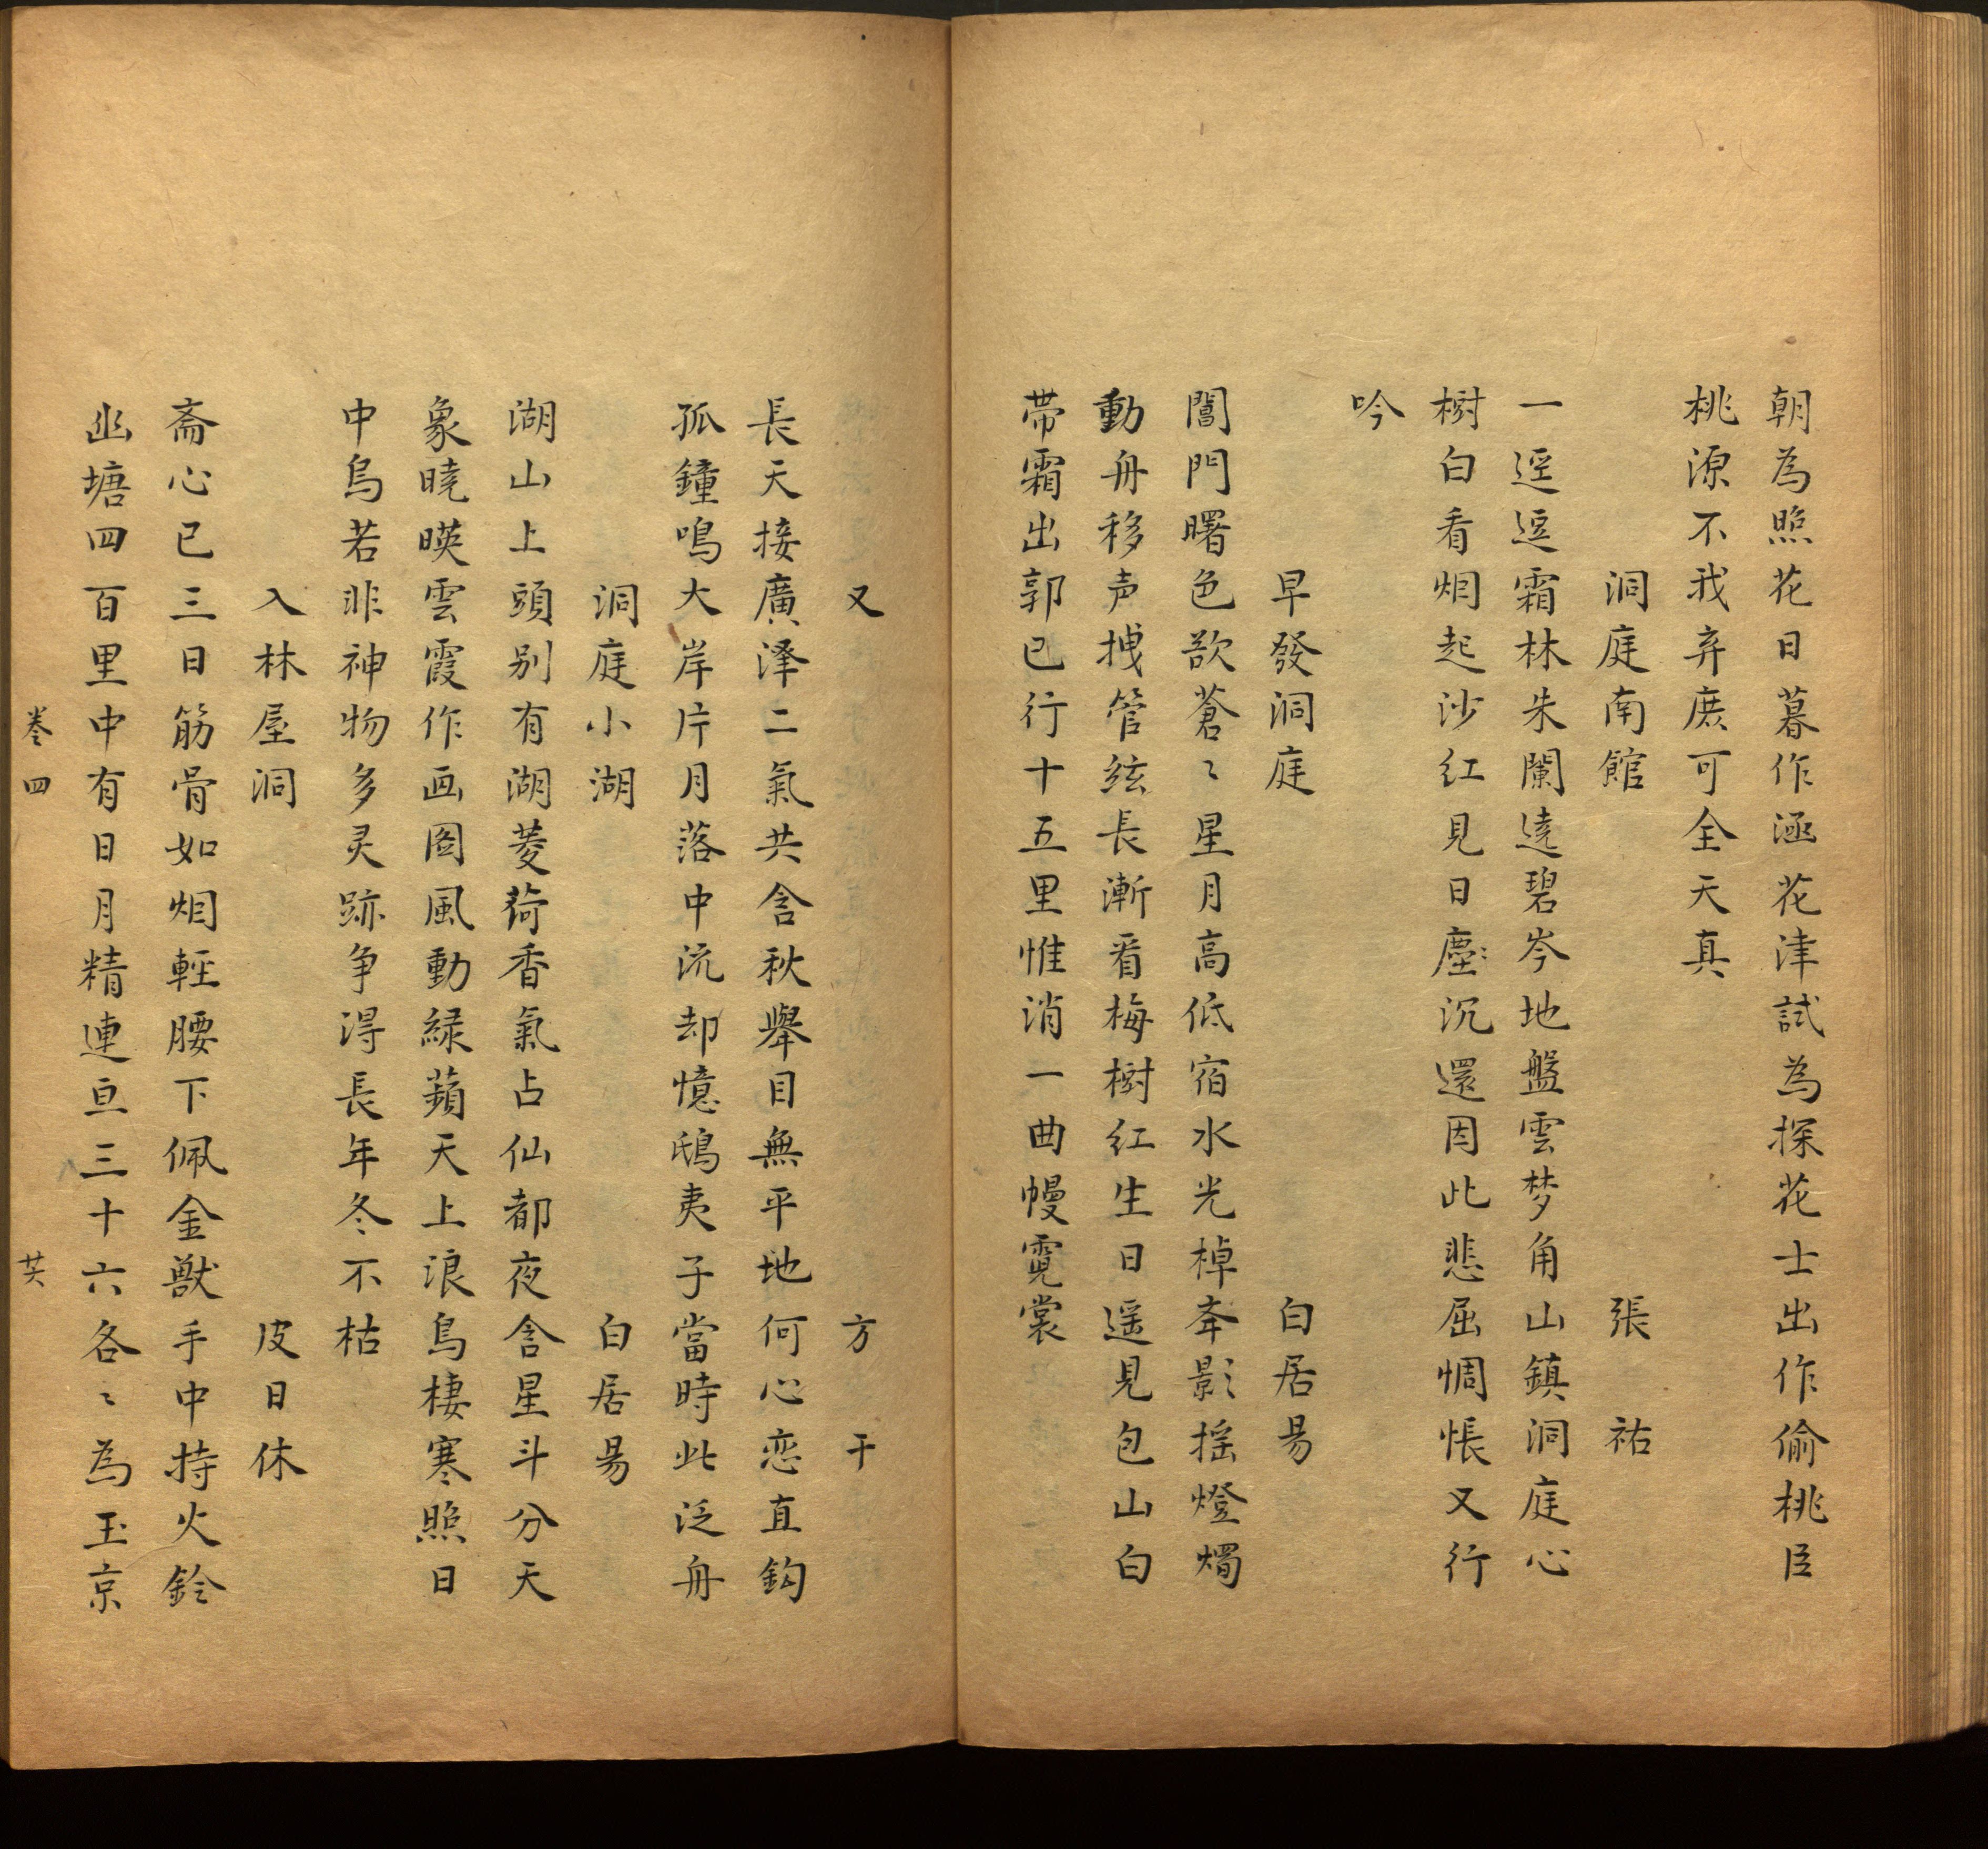 朝為照花日暮作涵花津試為探花士出作偷桃臣
桃源不我弃庶可全天真
洞庭南館 張祐
一逕逗霜林朱闌遶碧岑地盤雲梦角山鎮洞庭心
樹白看烟起沙红見日塵沉還因此悲屈惆悵又行
吟
早發洞庭 白居易
閶門曙色欲蒼〻星月高低宿水光棹奔影摇燈燭
動舟移声拽管絃長漸看梅樹红生日遥見包山白
带霜出郭已行十五里惟消一曲幔霓裳
又 方干
長天接廣泽二氣共含秋舉目無平地何心恋直鈎
孤鐘鳴大岸片月落中流却憶鴟夷子當時此泛舟
洞庭小湖 白居易
湖山上頭别有湖菱荷香氣占仙都夜含星斗分天
象曉暎雲霞作画图風動緑蘋天上浪鳥棲寒照日
中烏若非神物多灵跡争得長年冬不枯
入林屋洞 皮日休
斋心已三日筋骨如烟輕腰下佩金獸手中持火鈴
幽塘四百里中有日月精連亘三十六各〻為玉京
卷四 芖